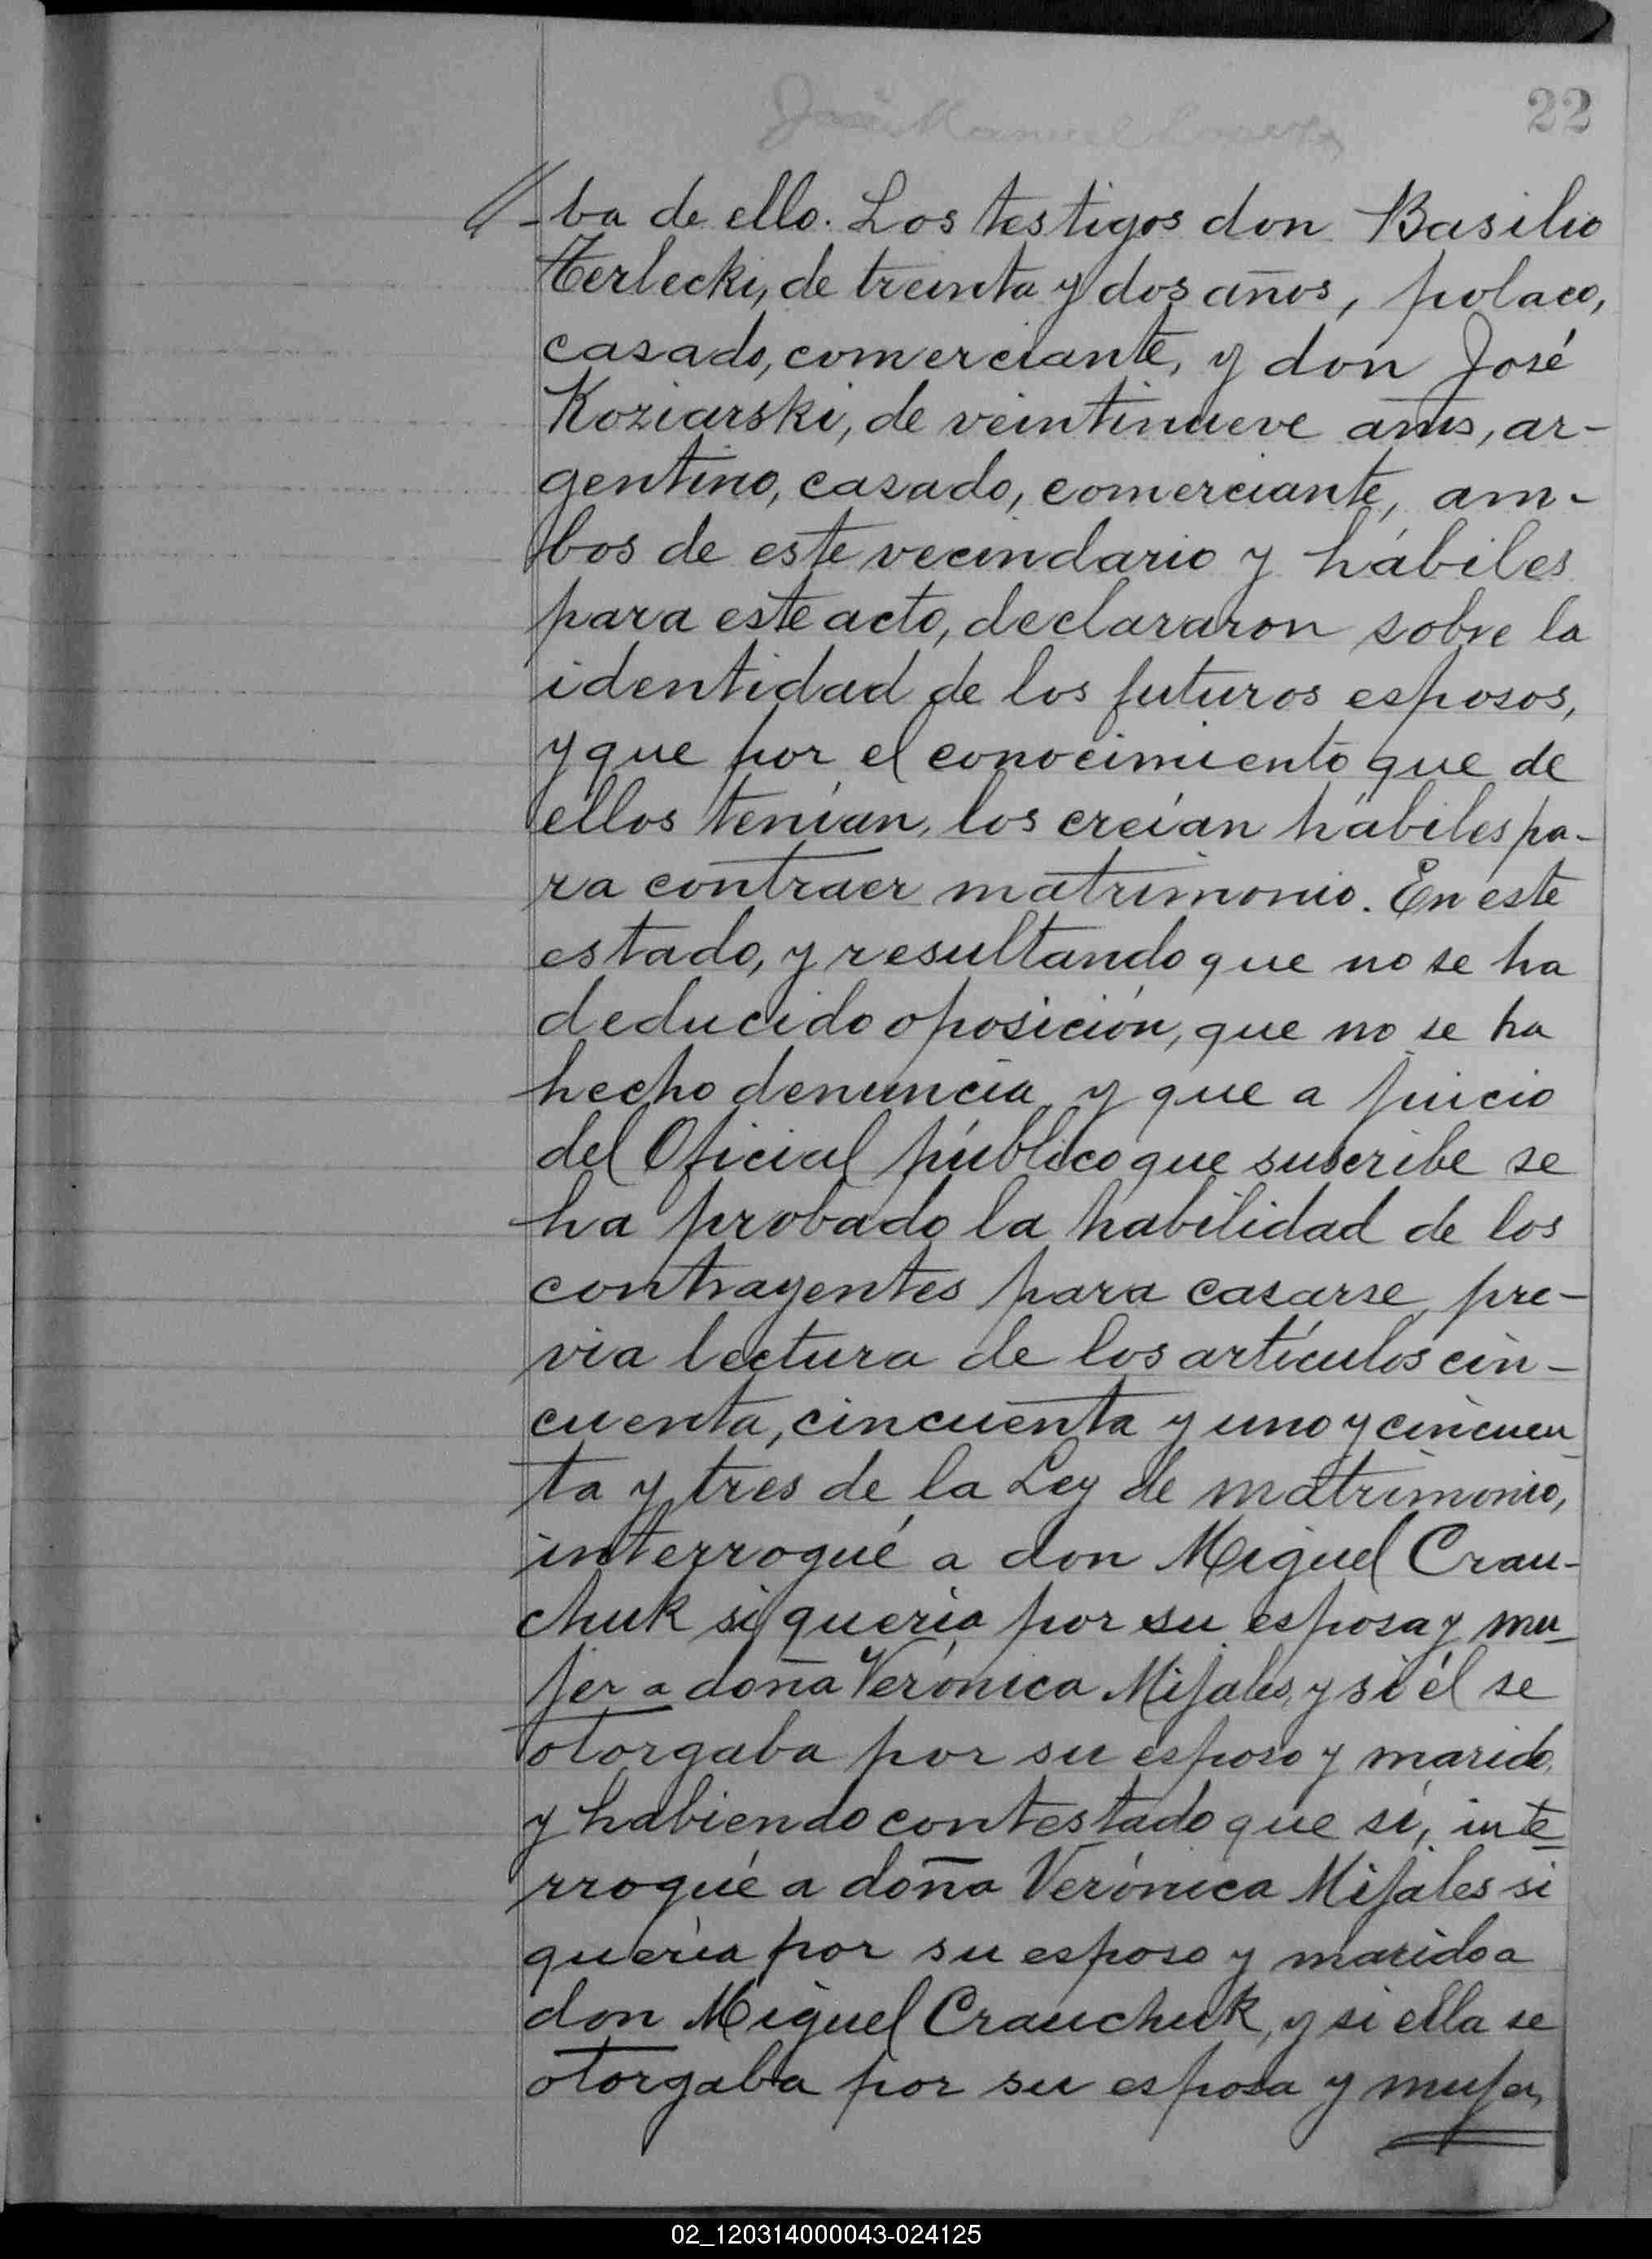 22
José Manuel
-ba de ello. Los testigos don Basilio
Terlecki, de treinta y dos años, polaco,
casado, comerciante, y don José
Koziarski, de veintinueve años, ar-
gentino, casado, comerciante, am-
bos de este vecindario y hábiles
para este acto, declararon sobre la
identidad de los futuros esposos,
y que por el conocimiento que de
ellos tenían, los creían hábiles pa-
ra contraer matrimonio. En este
estado, y resultando que no se ha
deducido oposición, que no se ha
hecho denuncia y que a juicio
del Oficial público que suscribe se
ha probado la habilidad de los
contrayentes para casarse, pre-
via lectura de los artículos cin-
cuenta, cincuenta y uno y cincuen
ta y tres de la Ley de matrimonio,
interrogué a don Miguel Crau-
chuk si quería por su esposa y mu-
jer a doña Verónica Mijales, y si él se
otorgaba por su esposo y marido,
y habiendo contestado que sí, inte
rrogué a doña Verónica Mijales si
quería por su esposo y marido a
don Miguel Crauchuk, y si ella se
otorgaba por su esposa y mujer,
02_120314000043-024125